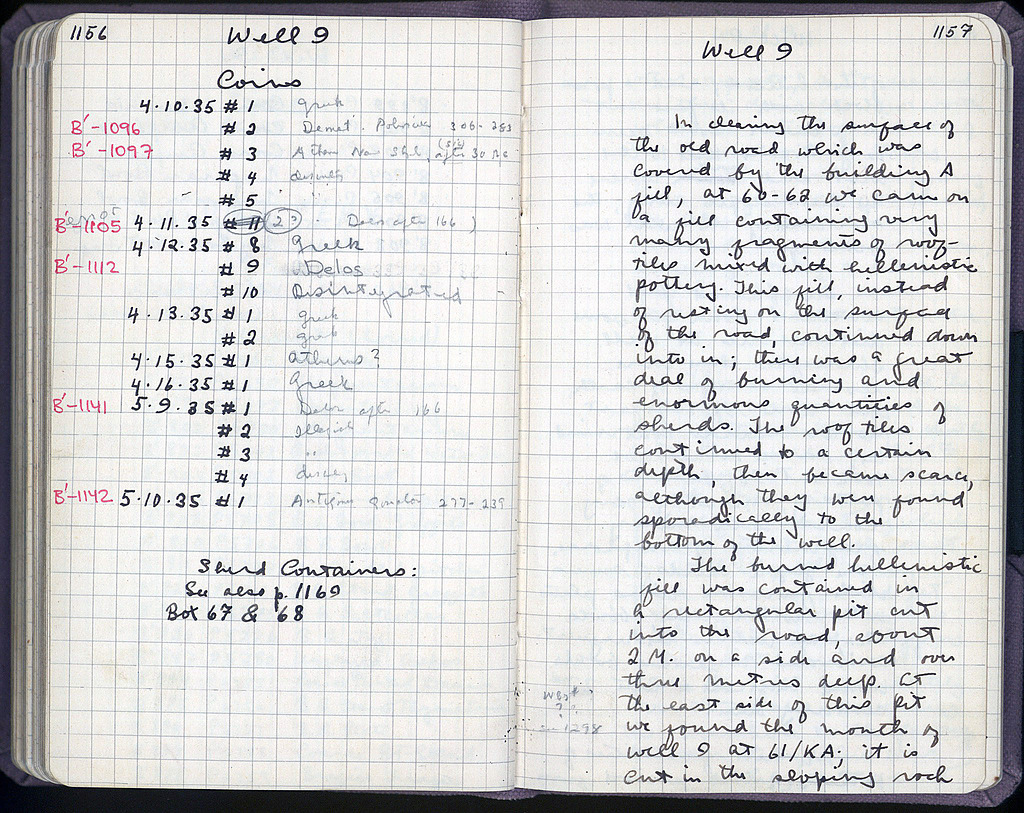 1156
Well 9
Coins
4.10.35 # 1 Greek
B'-1096 # 2 Demet. Poliorcetes 306-283
B'-1097 # 3 Athens New Style, (sic) after 30 BC
# 4 disinteg
# 5 "
B'-1105 4.11.35 # 11 (2?) Delos after 166)
4.12.35 # 8 Greek
B'-1112 # 9 Delos
# 10 Disintegrated -
4.13.35 # 1 Greek
# 2 Greek
4.15.35 # 1 Athens?
4.16.35 # 1 Greek
B'-1141 5.9.35 # 1 Delos after 166
# 2 Illegible
# 3 "
# 4 disinteg
B'-1142 5.10.35 # 1 Antigonus Gonatas 277-239
Sherd Containers:
See also p. 1169
Box 67 & 68
1157
Well 9
In clearing the surface of
the old road which was
covered by the building A
fill, at 60-62 we came on
a fill containing very
many fragments of roof-
tiles mixed with hellenistic
pottery. This fill, instead
of resting on the surface
of the road, continued down
into in; there was a great
deal of burning and
enormous quantities of
sherds. The roof tiles
continued to a certain
depth, then became scarce,
although they were found
sporadically to the
bottom of the well.
The burned hellenistic
fill was contained in
a rectangular pit cut
into the road, about
2 M. on a side and over
three metres deep. At
west
?
the east side of this pit
p. 1298
we found the mouth of
well 9 at 61/KA; it is
cut in the sloping rock